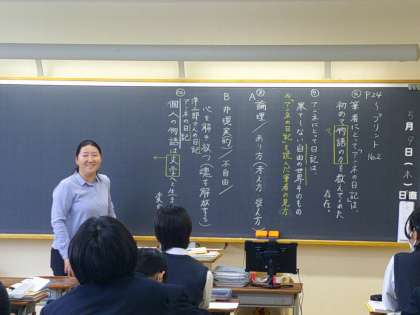 P24〜プリント No.2
筆者にとってアンネの日記は、
初めて物語の力を教えてくれた
存在。
アンネにとって日記は、
果てしない自由の世界そのもの
アンネの日記を読んだ筆者の見方
A 論理/あり方(考え方・捉え方)
B 非現実的/不自由/
心を解き放つ(魂を解放する)
アンネの日記
個人の物語は文学へと生ま
5月9日(木)
日直